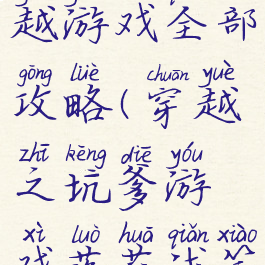 越游戏全部
gōng lüè chuān yuè
攻略(穿越
zhī kēng diē yóu
之坑爹游
xì luò huā qiǎn xiào
戏落花浅笑